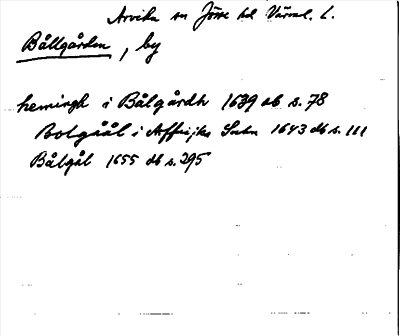 Arvika sn Jösse hd Värml. l.
Bållgården, by
hemingh i Bålgårdh 1639 db s. 78
Bolgåål i Affuijka Sochn 1643 db s. 111
Bålgål 1655 db s. 295